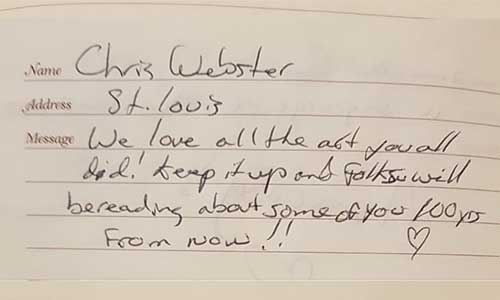 Name Chris Webster
Address St. Louis
Message We love all the art you all
did! Keep it up and Folks will
be reading about some of you 100 yrs
From Now!! ♡